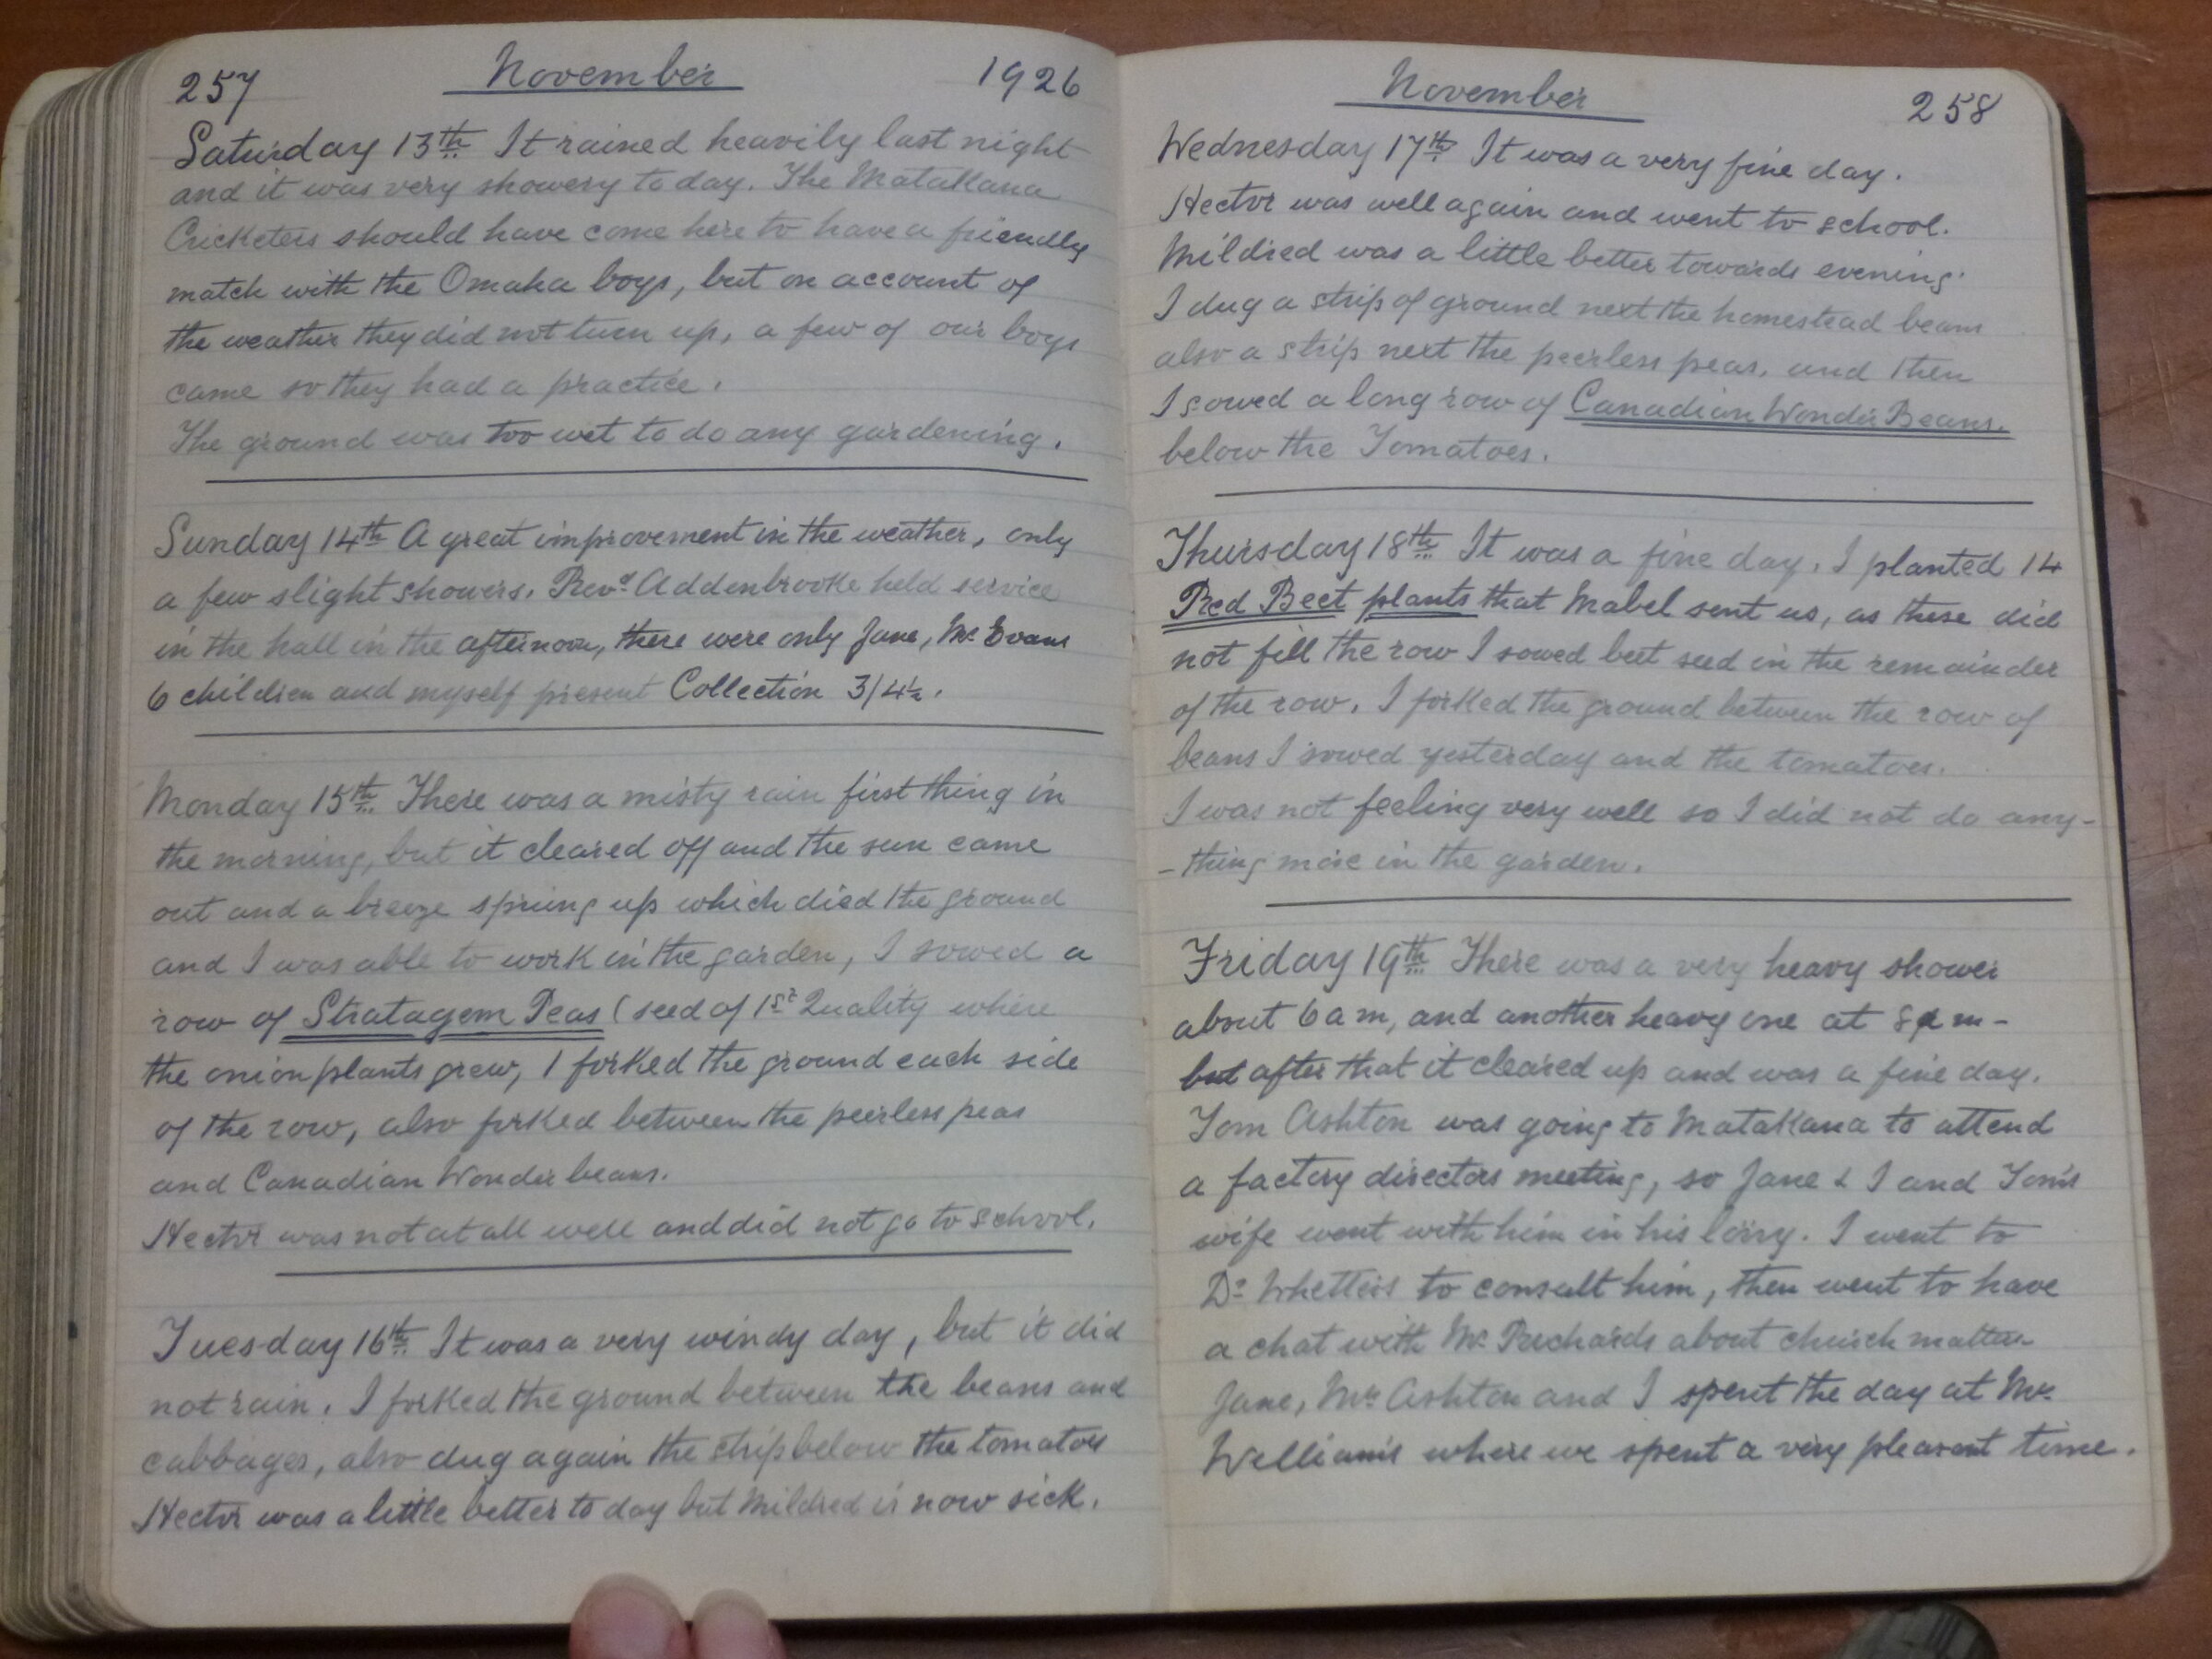 257 November 1926
Saturday 13th It rained heavily last night
and it was very showery to day. The Matakana
Cricketers should have come here to have a friendly
match with the Omaha boys, but on account of
the weather they did not turn up, a few of our boys
came so they had a practice.
The ground was too wet to do any gardening.
Sunday 14th A great improvement in the weather, only
a few slight showers. Revd Addenbrooke held service
in the hall in the afternoon, there were only Jane, Mr Evans
6 children and myself present Collection 3/4½.
Monday 15th There was a misty rain first thing in
the morning, but it cleared off and the sun came
out and a breeze sprung up which dried the ground
and I was able to work in the garden, I sowed a
row of Stratagem Peas (seed of 1st Quality where
the onion plants grew, I forked the ground each side
of the row, also forked between the peerless peas
and Canadian Wonder beans.
Hector was not at all well and did not go to school.
Tuesday 16th It was a very windy day, but it did
not rain. I forked the ground between the beans and
cabbages, also dug again the strip below the tomatoes
Hector was a little better to day but Mildred is now sick.
November 258
Wednesday 17th It was a very fine day.
Hector was well again and went to school.
Mildred was a little better towards evening.
I dug a strip of ground next the homestead beans
also a strip next the peerless peas, and then
I sowed a long row of Canadian Wonder Beans.
below the Tomatoes.
Thursday 18th It was a fine day. I planted 14
Red Beet plants that Mabel sent us, as these did
not fill the row I sowed beet seed in the remainder
of the row. I forked the ground between the row of
beans I sowed yesterday and the tomatoes.
I was not feeling very well so I did not do any-
-thing more in the garden.
Friday 19th There was a very heavy shower
about 6 a m, and another heavy one at 8 a m -
but after that it cleared up and was a fine day.
Tom Ashton was going to Matakana to attend
a factory directors meeting, so Jane & I and Tom's
wife went with him in his lorry. I went to
Dr Whetters to consult him, then went to have
a chat with Mr Richards about church matters
Jane, Mrs Ashton and I spent the day at Mrs
William's where we spent a very pleasant time.